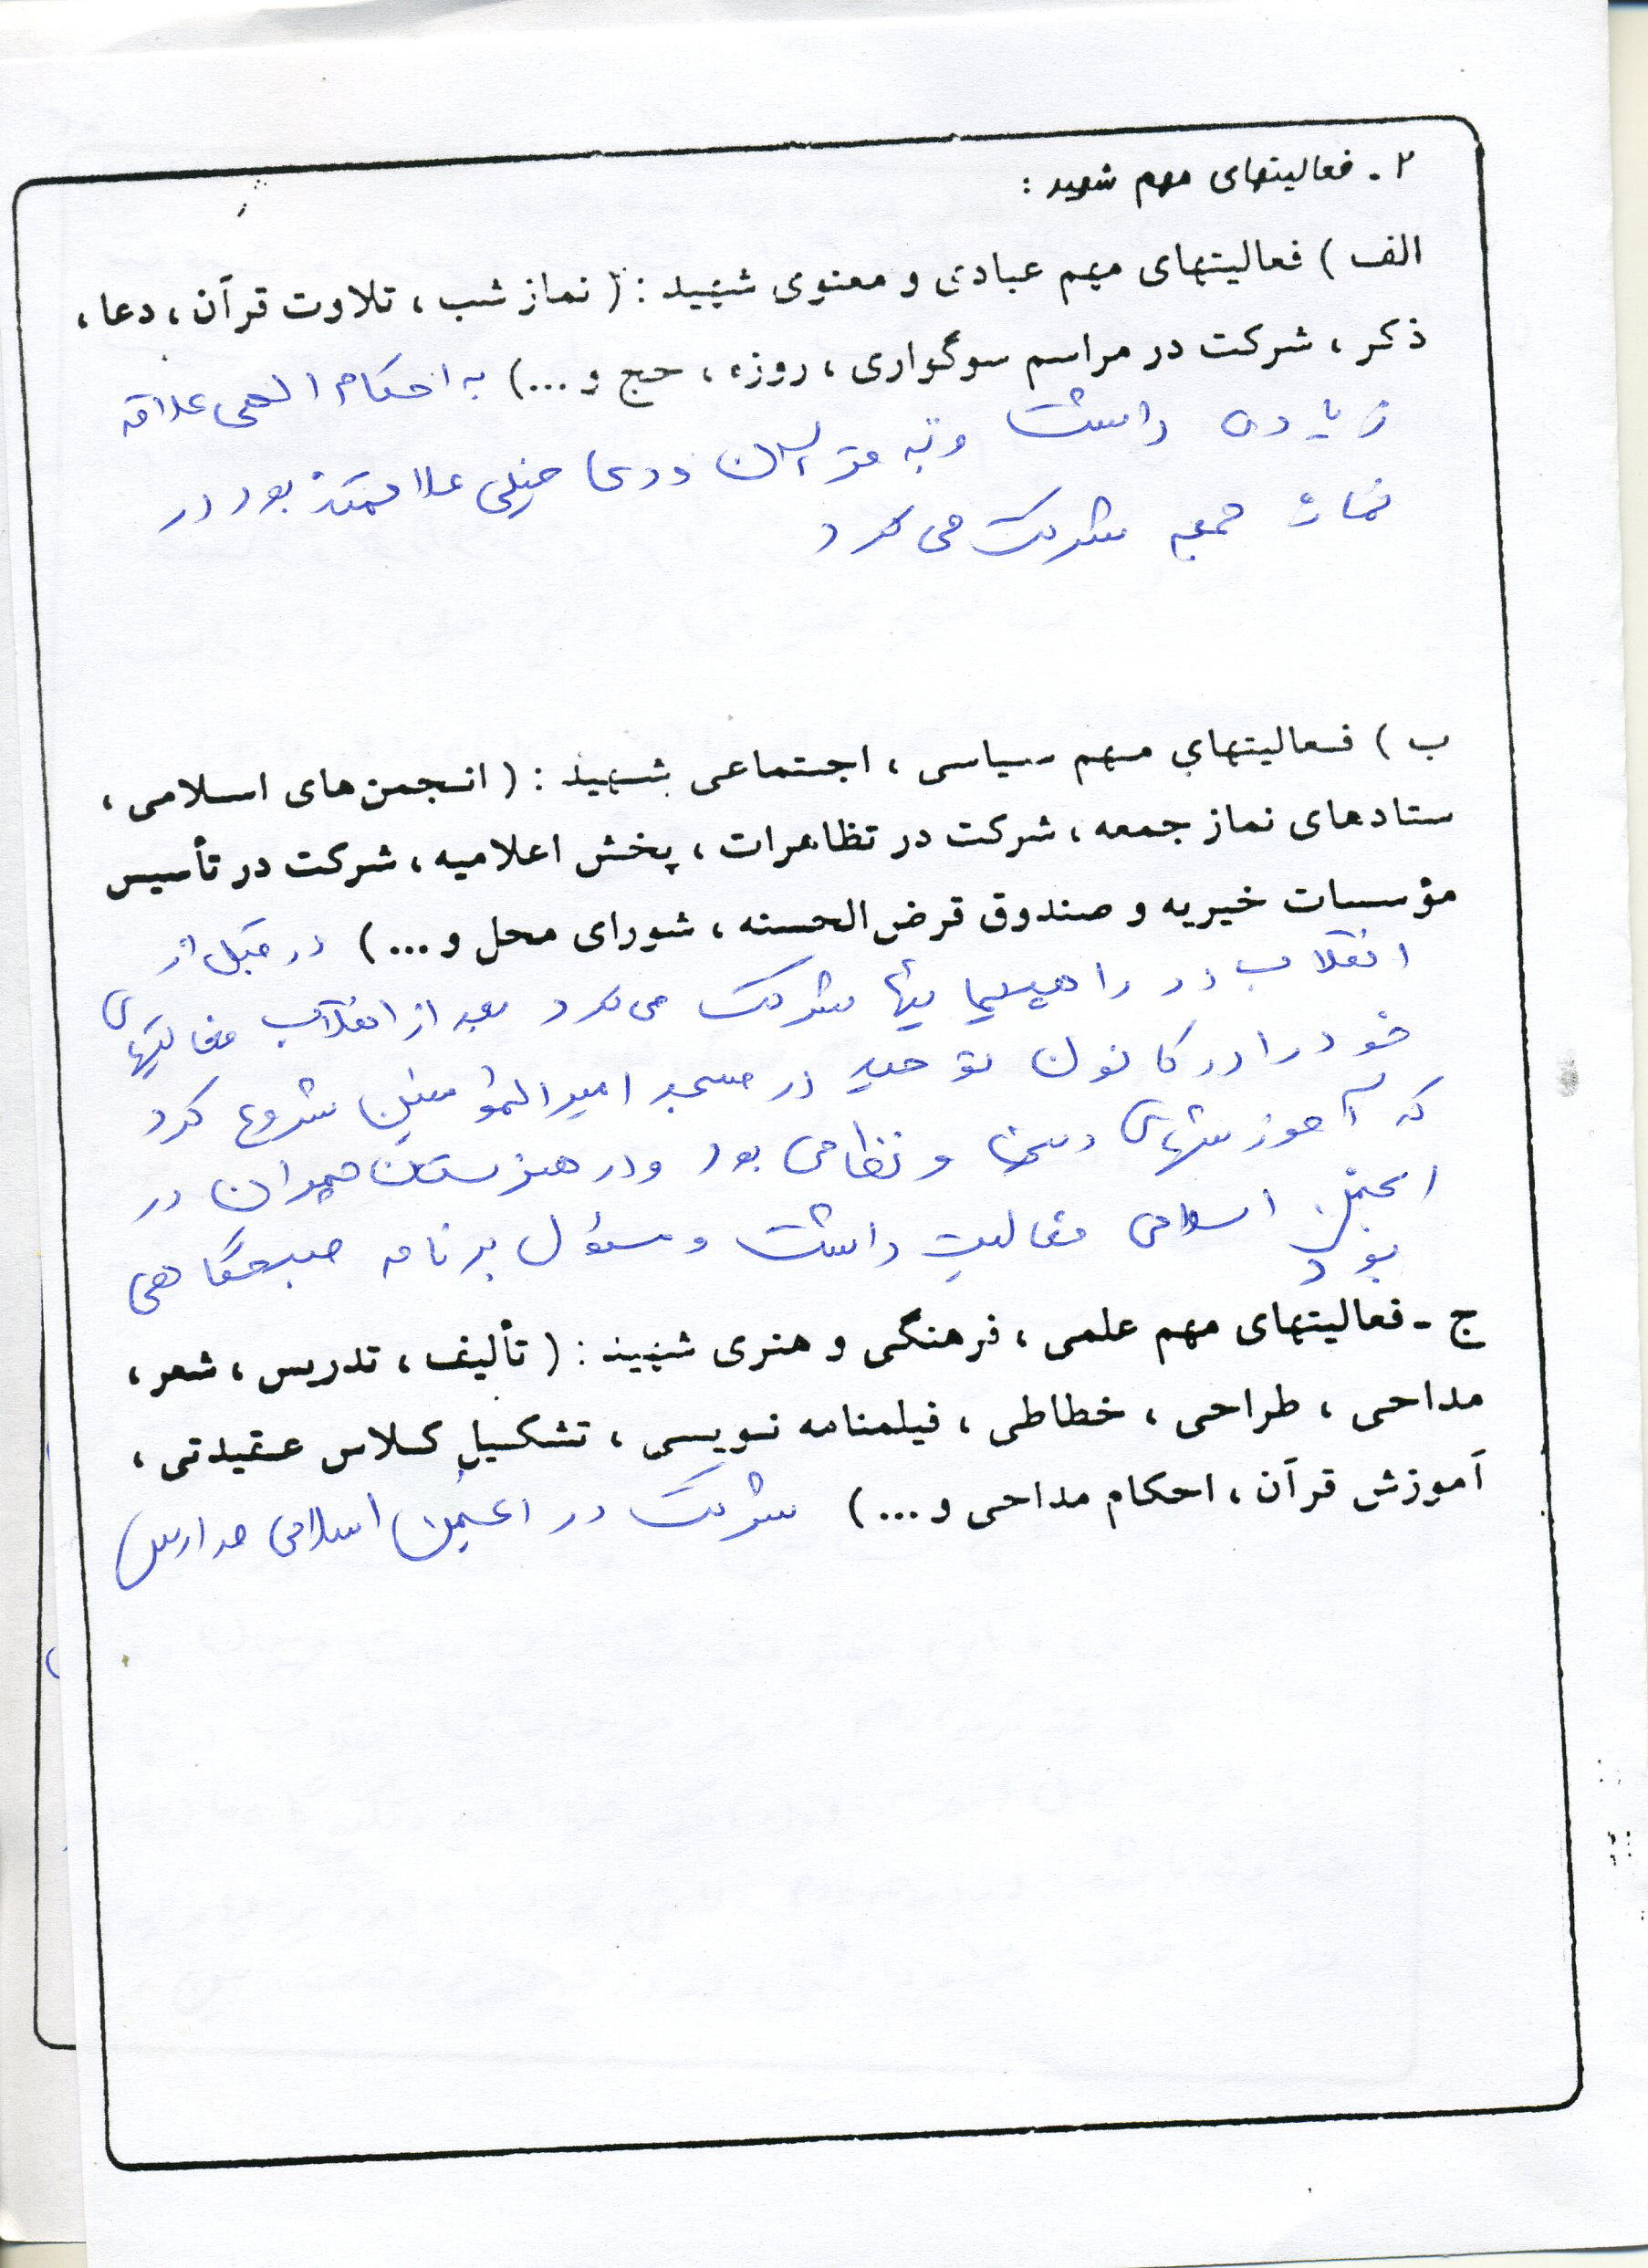 ۲ - فعالیتهای مهم شهید :
الف ) فعالیتهای مهم عبادی و معنوی شهید : ( نماز شب ، تلاوت قرآن ، دعا ،
ذکر ، شرکت در مراسم سوگواری ، روزه ، حج و ...) به احکام الهی علاقه
زیادی داشت و به قرآن و دعا خیلی علاقمند بود در
نماز جمعه شرکت می کرد
ب ) فعالیتهای مهم سیاسی ، اجتماعی شهید : ( انجمن‌های اسلامی ،
ستادهای نماز جمعه ، شرکت در تظاهرات ، پخش اعلامیه ، شرکت در تأسیس
مؤسسات خیریه و صندوق قرض‌الحسنه ، شورای محل و ...) در قبل از
انقلاب در راهپیمایی‌ها شرکت می کرد بعد از انقلاب فعالیتهای
خود را در کانون توحید در مسجد امیرالمؤمنین شروع کرد
که آموزشهای دینی و نظامی بود و در هنرستان چمران در
انجمن اسلامی فعالیت داشت و مسؤل برنامه صبحگاهی
بود
ج - فعالیتهای مهم علمی ، فرهنگی و هنری شهید : ( تألیف ، تدریس ، شعر ،
مداحی ، طراحی ، خطاطی ، فیلمنامه نویسی ، تشکیل کلاس عقیدتی ،
آموزش قرآن ، احکام مداحی و ...) شرکت در انجمن اسلامی مدارس